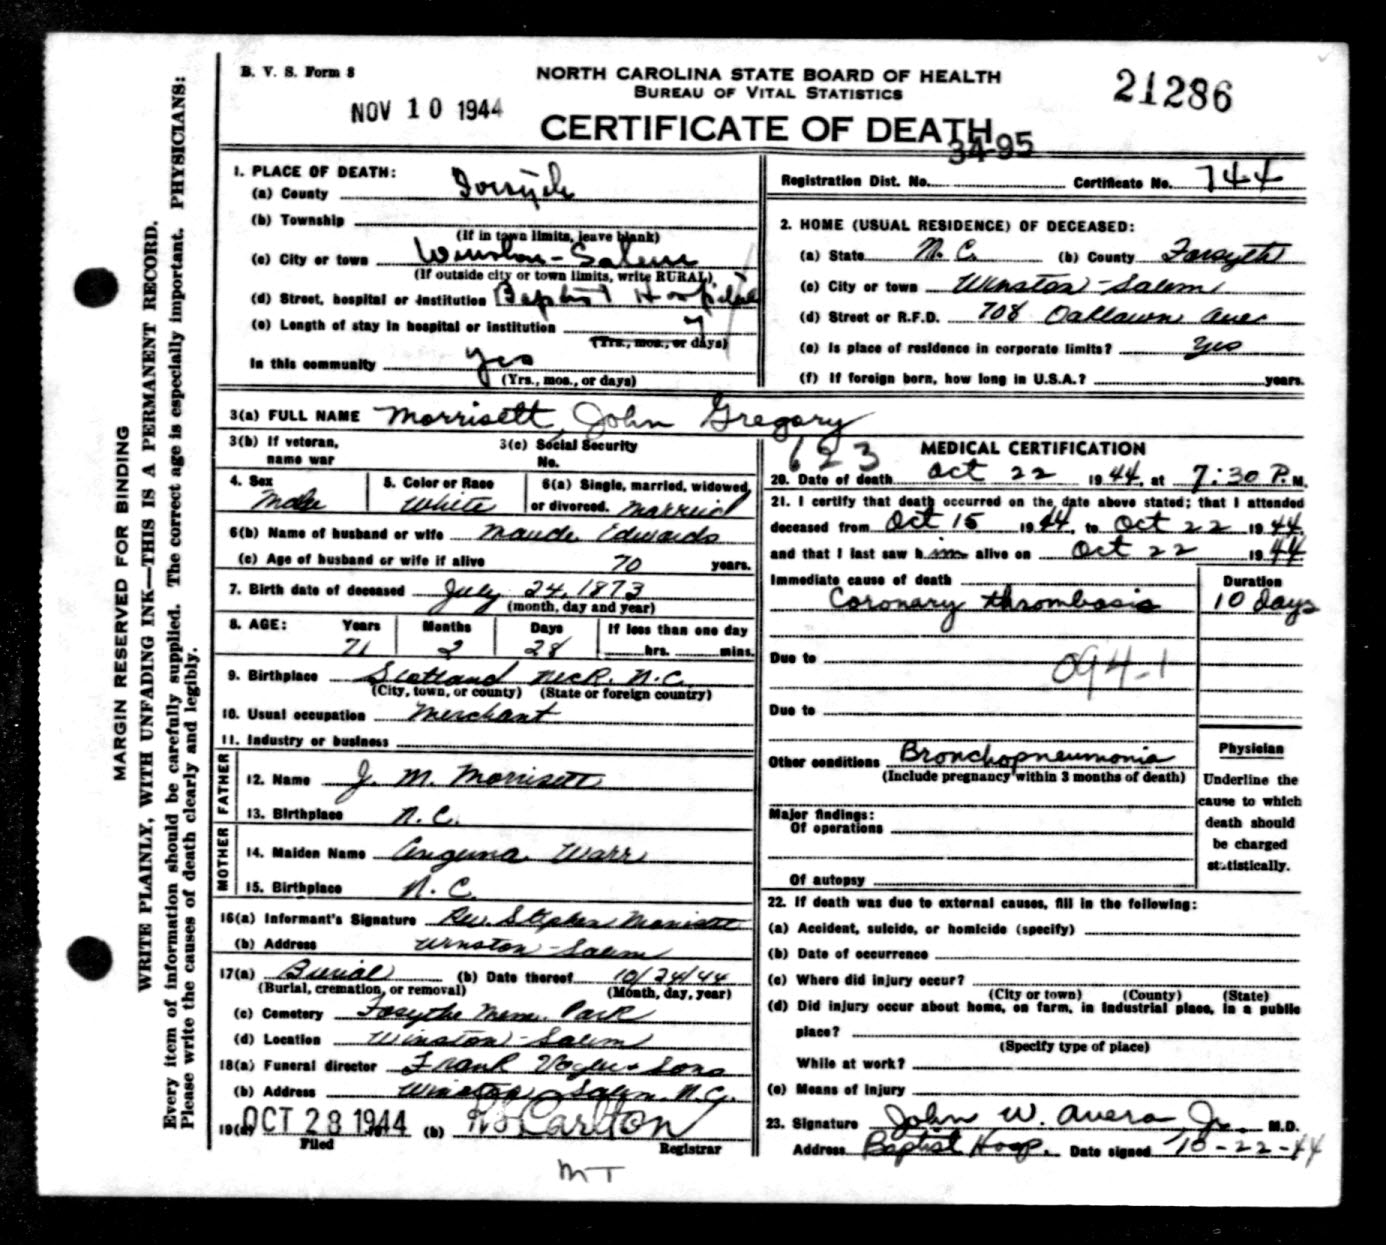 B. V. S. Form 8
NORTH CAROLINA STATE BOARD OF HEALTH
BUREAU OF VITAL STATISTICS
21286
NOV 10 1944
CERTIFICATE OF DEATH
34-95
Registration Dist. No. Certificate No. 744
1. PLACE OF DEATH:
(a) County Forsyth
(b) Township
(If in town limits, leave blank)
(c) City or town Winston-Salem
(If outside city or town limits, write RURAL)
(d) Street, hospital or institution Baptist Hospital
(e) Length of stay in hospital or institution 7
(Yrs., mos., or days)
In this community yes
(Yrs., mos., or days)
2. HOME (USUAL RESIDENCE) OF DECEASED:
(a) State N. C. (b) County Forsythe
(c) City or town Winston-Salem
(d) Street or R.F.D. 708 Oaklawn Ave
(e) Is place of residence in corporate limits? Yes
(f) If foreign born, how long in U.S.A.? years.
3(a) FULL NAME Morrisett, John Gregory
3(b) If veteran, name war
3(c) Social Security No.
4. Sex Male
5. Color or Race White
6(a) Single, married, widowed, or divorced. Married
6(b) Name of husband or wife Maude Edwards
(c) Age of husband or wife if alive 70 years.
7. Birth date of deceased July 24, 1873
(month, day and year)
8. AGE: Years Months Days If less than one day
71 2 28 hrs. mins.
9. Birthplace Scotland Neck. N.C.
(City, town, or county) (State or foreign country)
10. Usual occupation Merchant
11. Industry or business
FATHER
12. Name J. M. Morrisett
13. Birthplace N.C.
MOTHER
14. Maiden Name Warr
15. Birthplace N.C.
16(a) Informant's Signature Rev. Stephen Morrisett
(b) Address Winston-Salem
17(a) Burial (b) Date thereof 10/24/44
(Burial, cremation, or removal) (Month, day, year)
(c) Cemetery Forsythe Mem. Park
(d) Location Winston-Salem
18(a) Funeral director Frank Vogler & Sons
(b) Address Winston-Salem. N.C.
19(a) OCT 28 1944 (b) Carlton
Filed Registrar
MT
623
MEDICAL CERTIFICATION
20. Date of death Oct 22 1944, at 7:30 P.M.
21. I certify that death occurred on the date above stated; that I attended
deceased from Oct 15 1944, to Oct 22 1944
and that I last saw him alive on Oct 22 1944
Immediate cause of death Duration
Coronary thrombosis 10 days
Due to
094-1
Due to
Other conditions Bronchopneumonia
(Include pregnancy within 3 months of death)
Major findings:
Of operations
Of autopsy
Physician
Underline the
cause to which
death should
be charged
statistically.
22. If death was due to external causes, fill in the following:
(a) Accident, suicide, or homicide (specify)
(b) Date of occurrence
(c) Where did injury occur?
(City or town) (County) (State)
(d) Did injury occur about home, on farm, in industrial place, in a public
place?
(Specify type of place)
While at work?
(e) Means of injury
23. Signature John W. Avera Jr. M.D.
Address Baptist Hosp. Date signed 10-22-44
MARGIN RESERVED FOR BINDING
WRITE PLAINLY, WITH UNFADING INK—THIS IS A PERMANENT RECORD.
Every item of information should be carefully supplied. The correct age is especially important. PHYSICIANS:
Please write the causes of death clearly and legibly.